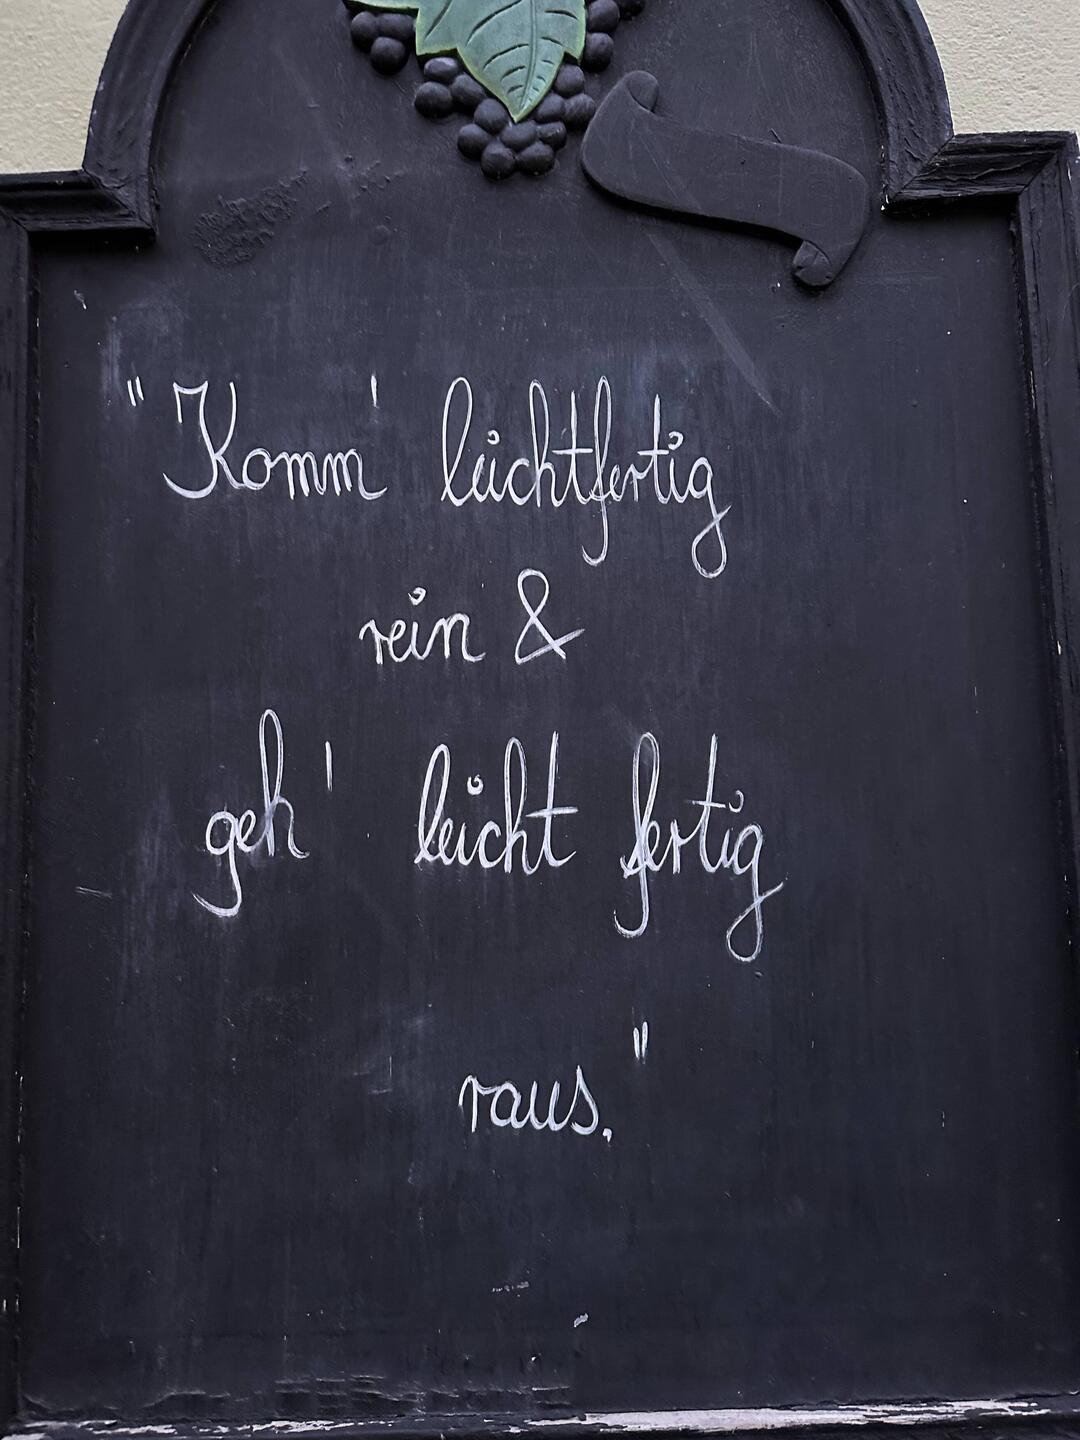 "Komm' leichtfertig
rein &
geh' leicht fertig
raus."